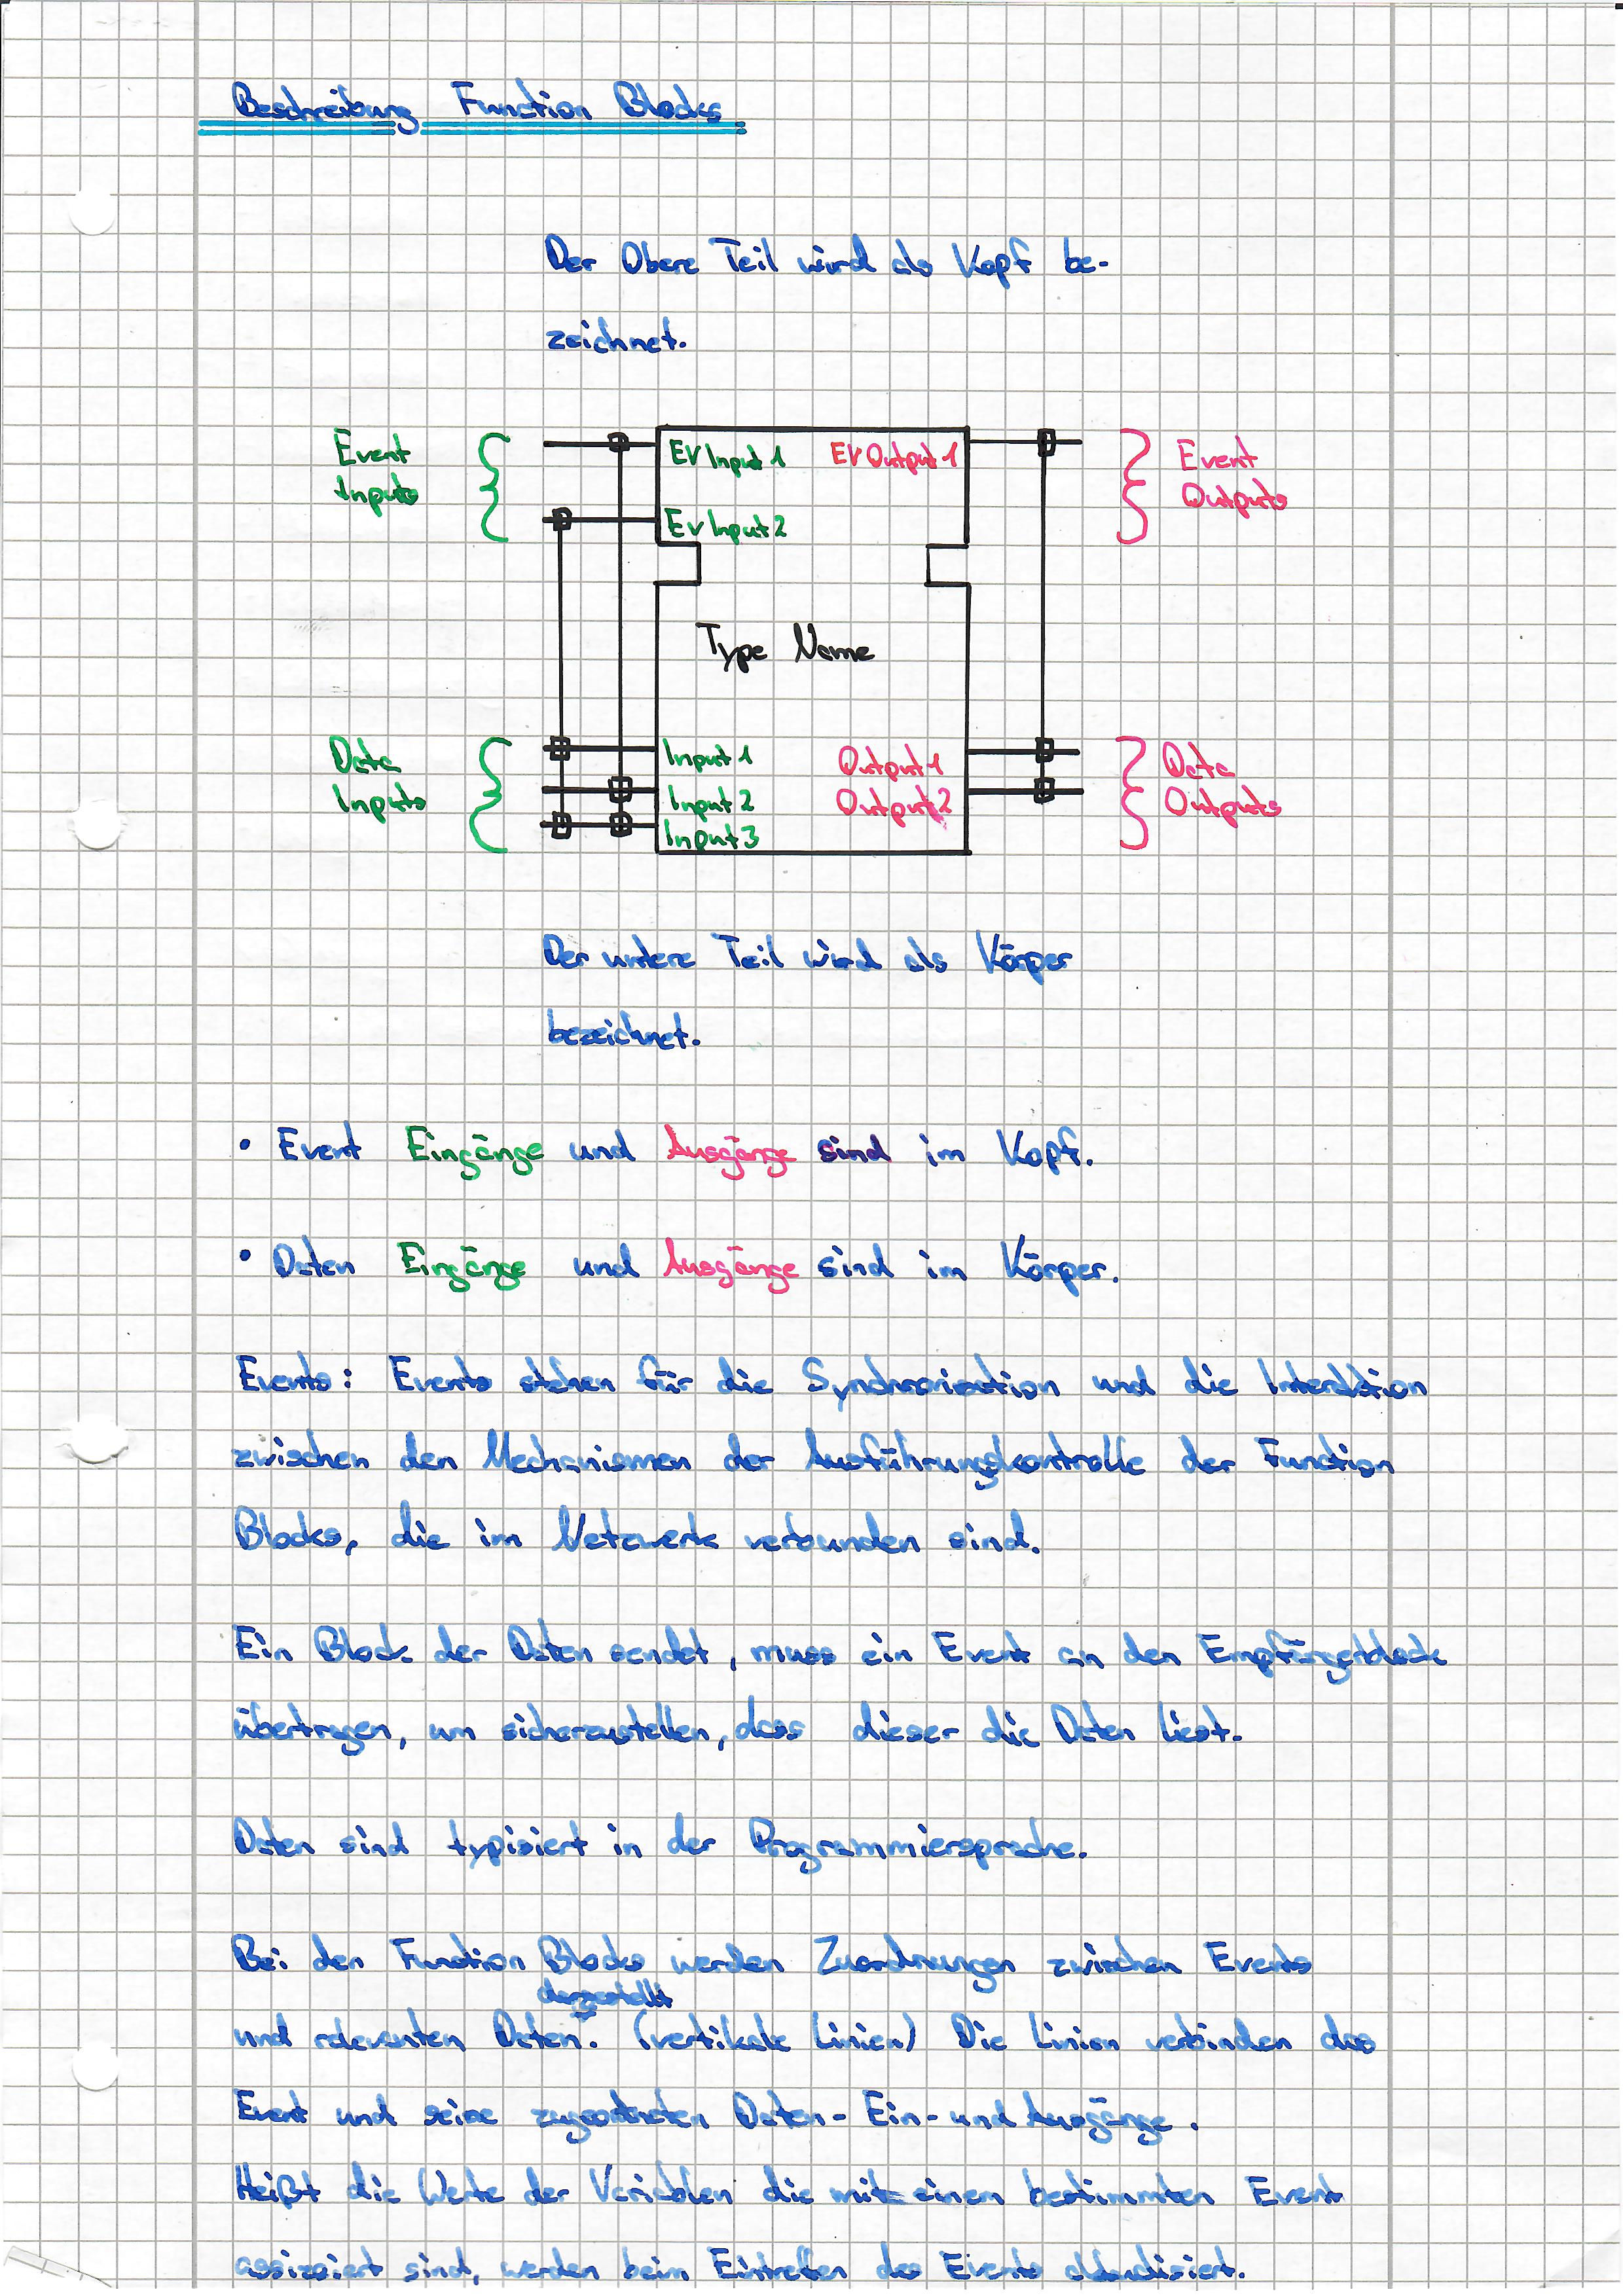 Beschreibung Function Blocks
Der Obere Teil wird als Kopf be-
zeichnet.
Event
Inputs
EV Input 1
EV Output 1
Event
Outputs
EV Input 2
Type Name
Data
Inputs
Input 1
Input 2
Input 3
Output 1
Output 2
Data
Outputs
Der untere Teil wird als Körper
bezeichnet.
• Event Eingänge und Ausgänge sind im Kopf.
• Daten Eingänge und Ausgänge sind im Körper.
Events: Events stehen für die Synchronisation und die Interaktion
zwischen den Mechanismen der Ausführungskontrolle der Function
Blocks, die im Netzwerk verbunden sind.
Ein Block der Daten sendet, muss ein Event an den Empfängerblock
übertragen, um sicherzustellen, dass dieser die Daten liest.
Daten sind typisiert in der Programmiersprache.
Bei den Function Blocks werden Zuordnungen zwischen Events
dargestellt
und relevanten Daten. (vertikale Linien) Die Linien verbinden das
Event und seine zugeordneten Daten-Ein-und Ausgänge.
Heißt die Werte der Variablen die mit einem bestimmten Event
assiziiert sind, werden beim Eintreffen des Events aktualisiert.